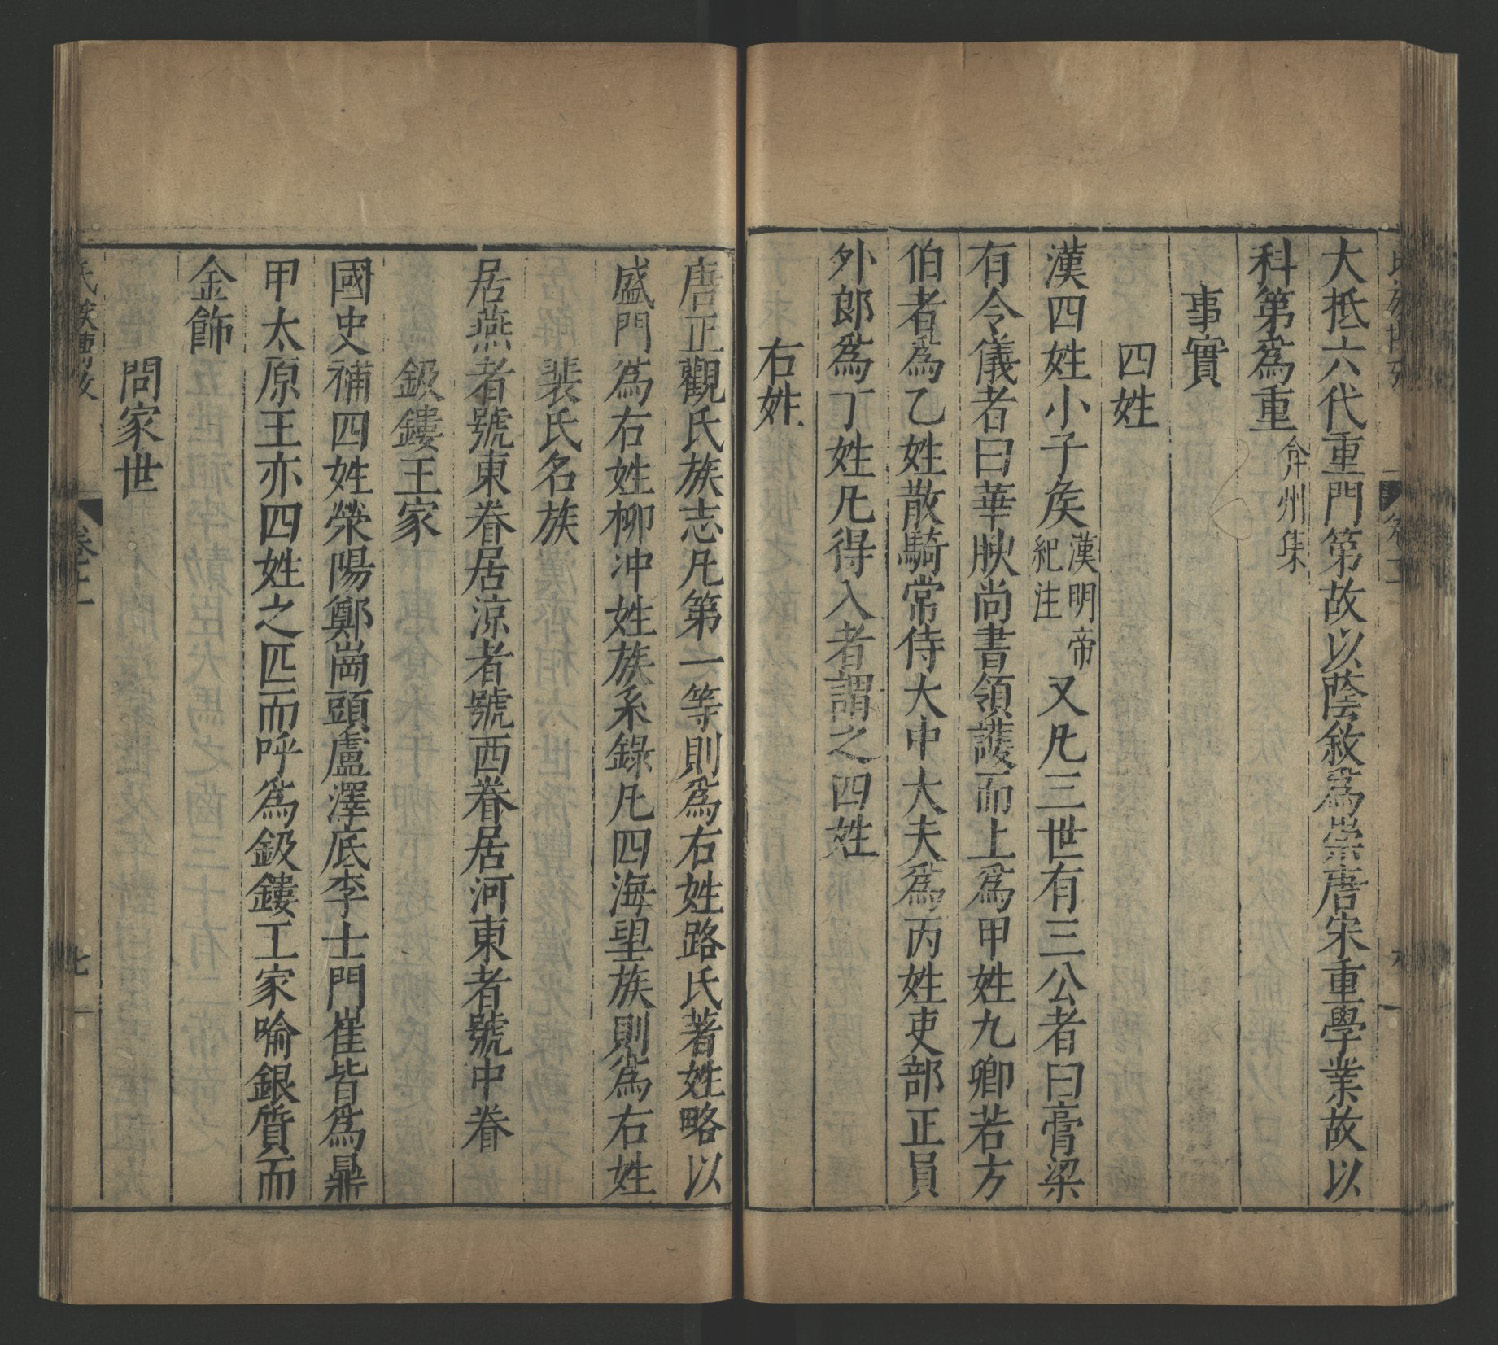 大抵六代重門第故以蔭敘為崇唐宋重學業故以
科第為重弇州集
事實
四姓
漢四姓小子矦漢明帝紀注又凡三世有三公者曰膏粱
有令儀者曰華腴尚書領護而上為甲姓九卿若方
伯者為乙姓散騎常侍大中大夫為丙姓吏部正員
外郎為丁姓凡得入者謂之四姓
右姓
唐正觀氏族志凡第一等則為右姓路氏著姓略以
盛門為右姓柳沖姓族系錄凡四海望族則為右姓
裴氏名族
居燕者號東眷居涼者號西眷居河東者號中眷
鈒鏤王家
國史補四姓滎陽鄭崗頭盧澤底李士門崔皆為鼎
甲太原王亦四姓之匹而呼為鈒鏤王家喻銀質而
金飾
問家世
卷十一
七